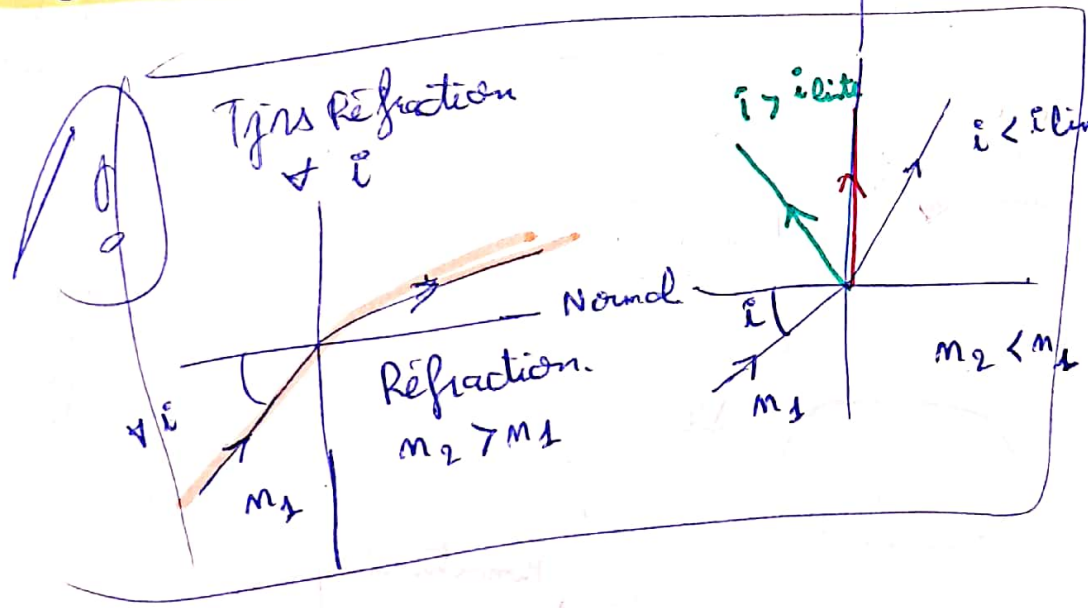 Tjrs Réfraction
∀ i
Normal
i
Réfraction.
n2 > n1
∀ i
n1
i > i limite
i < i lim
i
n2 < n1
n1